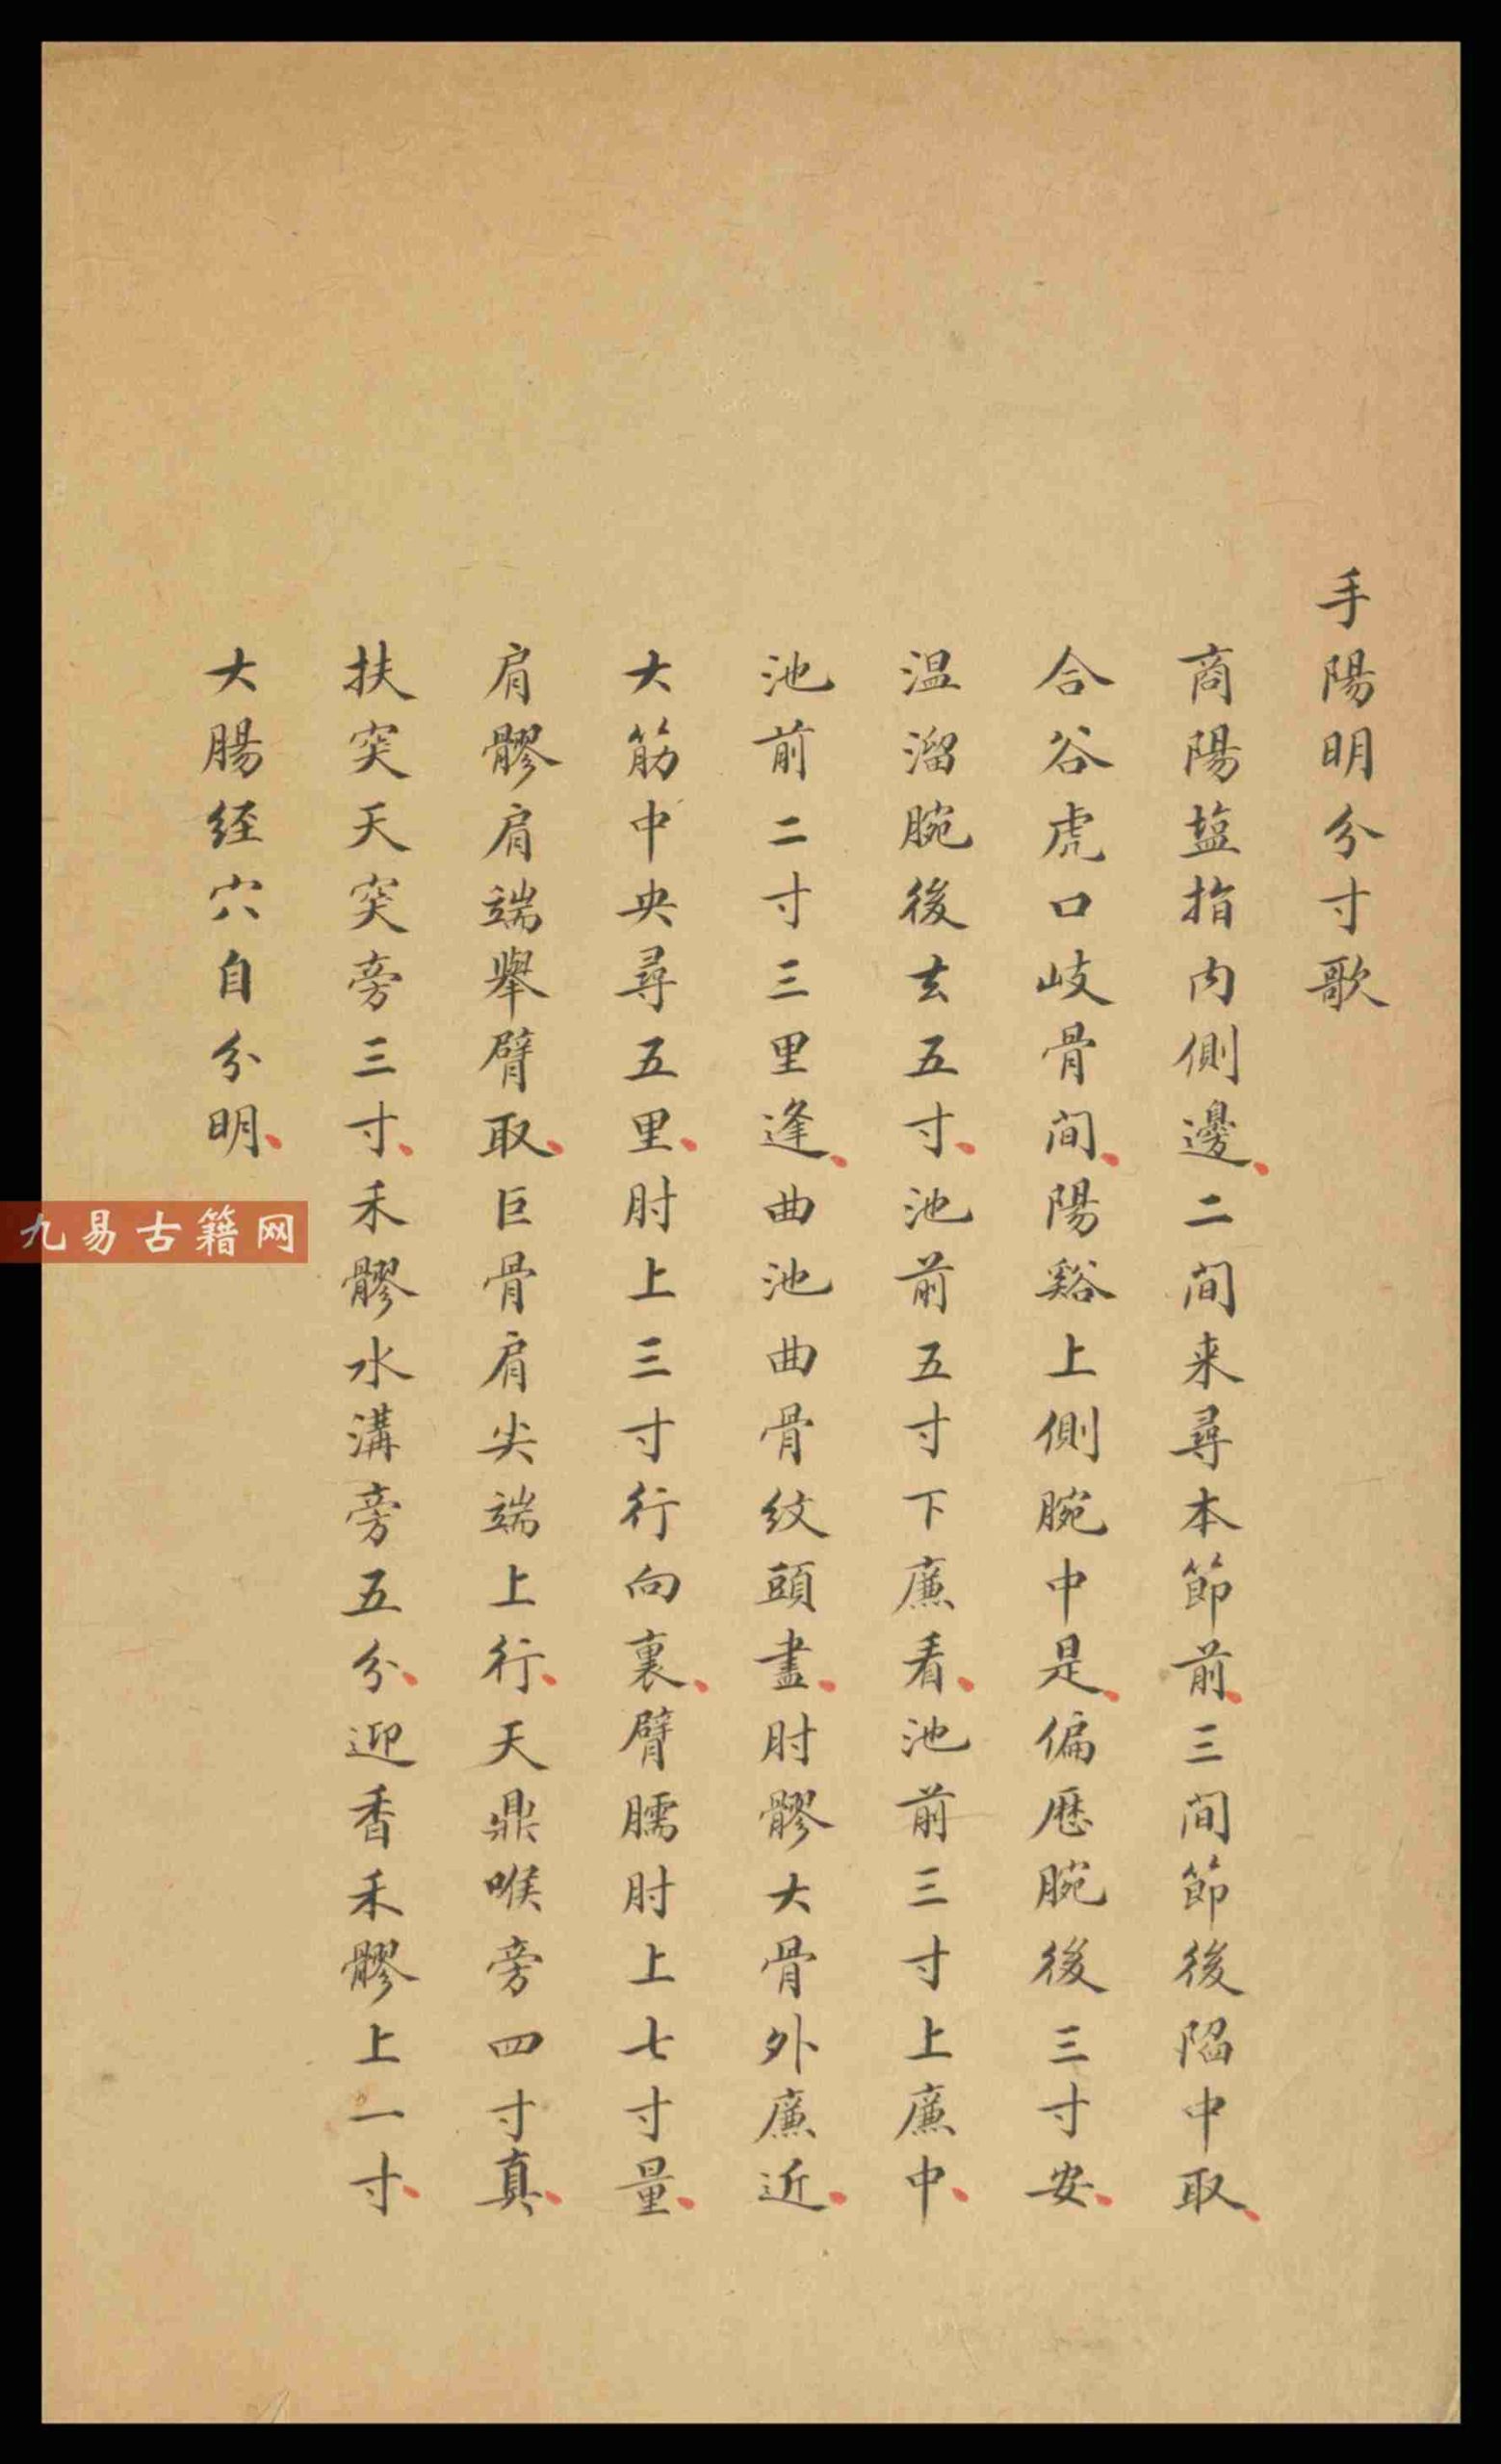 手陽明分寸歌
商陽塩指内側邊、二间来尋本節前、三间節後陷中取、
合谷虎口岐骨间、陽谿上側腕中是、偏歴腕後三寸安、
温溜腕後去五寸、池前五寸下廉看、池前三寸上廉中、
池前二寸三里逢、曲池曲骨紋頭盡、肘髎大骨外廉近、
大筋中央尋五里、肘上三寸行向裏、臂臑肘上七寸量、
肩髎肩端舉臂取、巨骨肩尖端上行、天鼎喉旁四寸真、
扶突天突旁三寸、禾髎水溝旁五分、迎香禾髎上一寸、
大腸経穴自分明、
九易古籍网